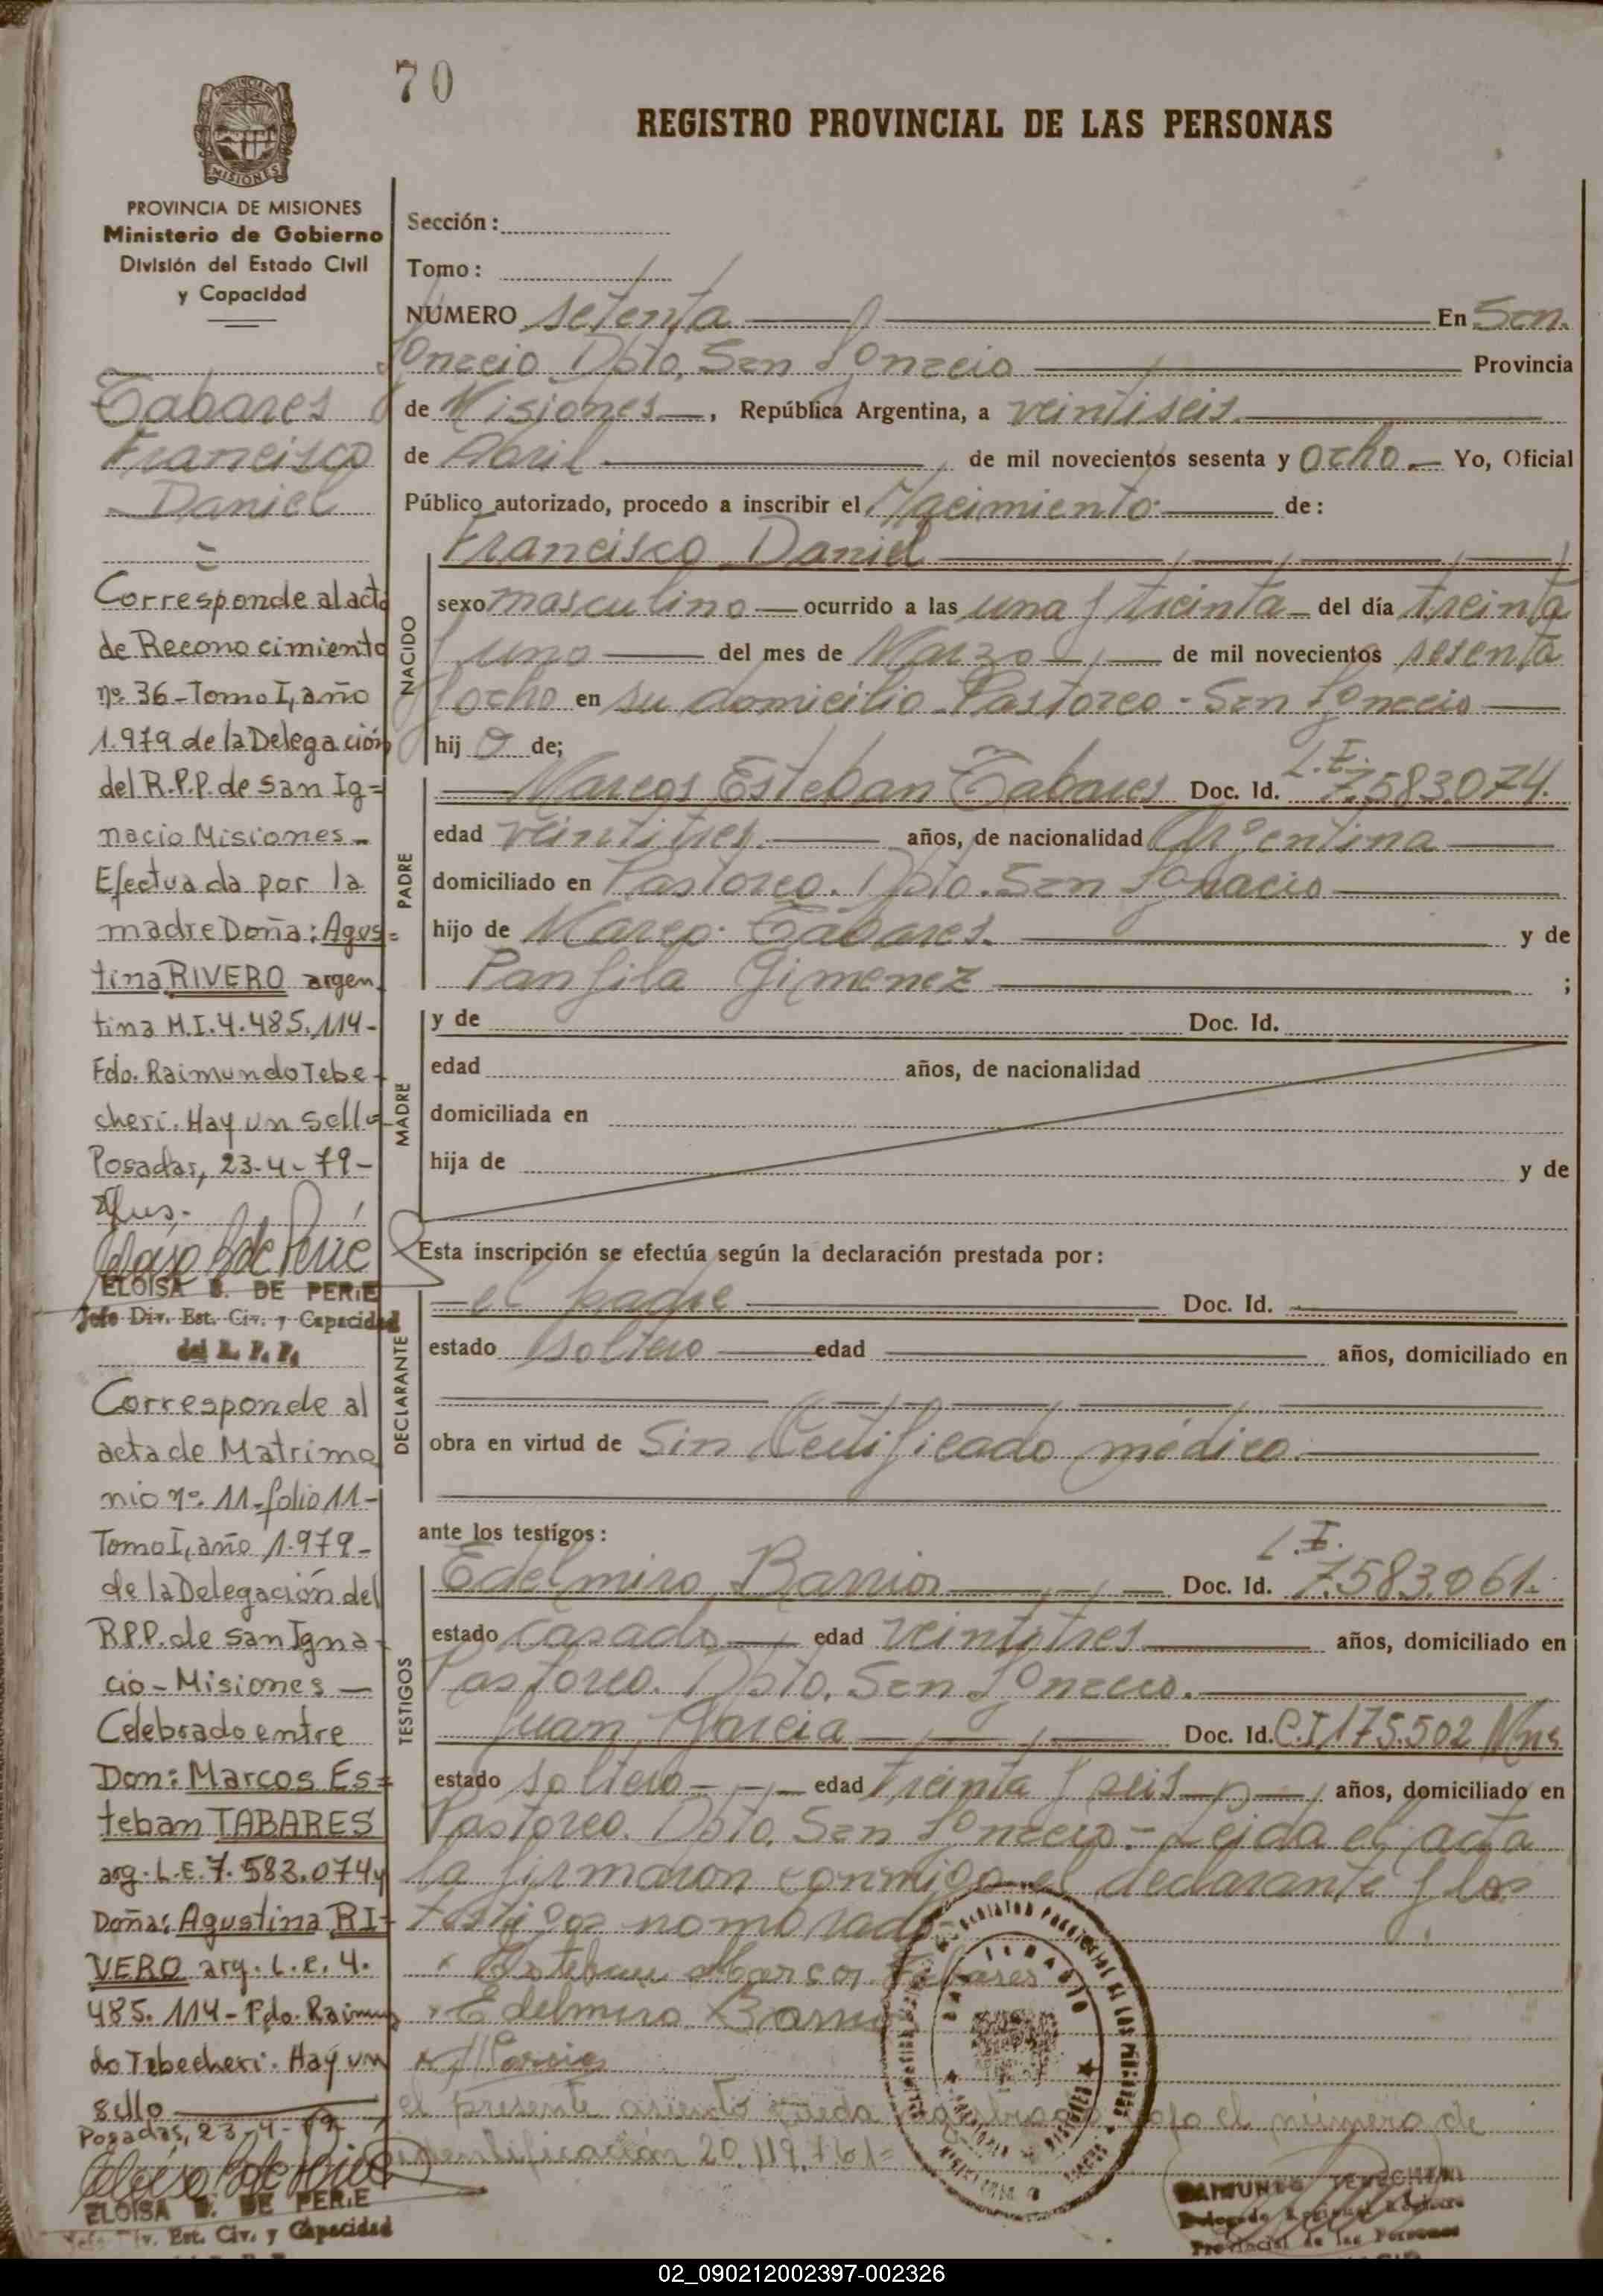 70
REGISTRO PROVINCIAL DE LAS PERSONAS
MISIONES
PROVINCIA DE MISIONES
Ministerio de Gobierno
División del Estado Civil
y Capacidad
Tabares
Francisco
Daniel
Corresponde al acta
de Reconocimiento
nº 36-Tomo I, año
1.979 de la Delegación
del R.P.P. de San Ig=
nacio Misiones-
Efectuada por la
madre Doña: Agus=
tina RIVERO argen
tina M.I. 4.485.114-
Fdo. Raimundo Tebe-
cheri. Hay un sello
Posadas, 23-4-79-
ELOISA B. DE PERIE
Jefe Div. Est. Civ. y Capacidad
del R. P. P.
Corresponde al
acta de Matrimo
nio nº 11-folio 11-
Tomo I, año 1.979-
de la Delegación del
R.P.P. de San Igna-
cio-Misiones-
Celebrado entre
Don: Marcos Es=
teban TABARES
arg. L.E. 7.583.074 y
Doña: Agustina RI-
VERO arg. L.E. 4.
485.114- Fdo. Raimun
do Tebecheri. Hay un
sello
Posadas, 23-4-79
ELOISA B. DE PERIE
Jefe Div. Est. Civ. y Capacidad
Sección:
Tomo:
NUMERO setenta En San
Ignacio Dpto. San Ignacio Provincia
de Misiones, República Argentina, a veintiseis
de Abril de mil novecientos sesenta y ocho Yo, Oficial
Público autorizado, procedo a inscribir el Nacimiento de:
NACIDO
Francisco Daniel
sexo masculino ocurrido a las una y treinta del día treinta
y uno del mes de Marzo de mil novecientos sesenta
y ocho en su domicilio Pastoreo - San Ignacio
hij o de;
PADRE
Marcos Esteban Tabares Doc. Id. L.E. 7.583.074.
edad veintitres años, de nacionalidad Argentina
domiciliado en Pastoreo. Dpto. San Ignacio
hijo de Marco Tabares. y de
Panfila Gimenez ;
MADRE
y de Doc. Id.
edad años, de nacionalidad
domiciliada en
hija de y de
Esta inscripción se efectúa según la declaración prestada por:
DECLARANTE
el padre Doc. Id.
estado soltero edad años, domiciliado en
obra en virtud de Sin Certificado médico.
ante los testigos:
TESTIGOS
Edelmiro Barrios Doc. Id. L.E. 7.583.061.
estado casado edad veintitres años, domiciliado en
Pastoreo. Dpto. San Ignacio.
Juan Garcia Doc. Id. C.I 175.502 Mns
estado soltero edad treinta y seis años, domiciliado en
Pastoreo. Dpto. San Ignacio.- Leida el acta
la firmaron conmigo el declarante y los
testigos nombrados
Esteban Marcos Tabares
Edelmiro Barrios
J Garcia
el presente asiento queda registrado bajo el número de
identificación 20.119.761=
RAIMUNDO TEBECHERI
Delegado Regional Registro
Provincial de las Personas
02_090212002397-002326